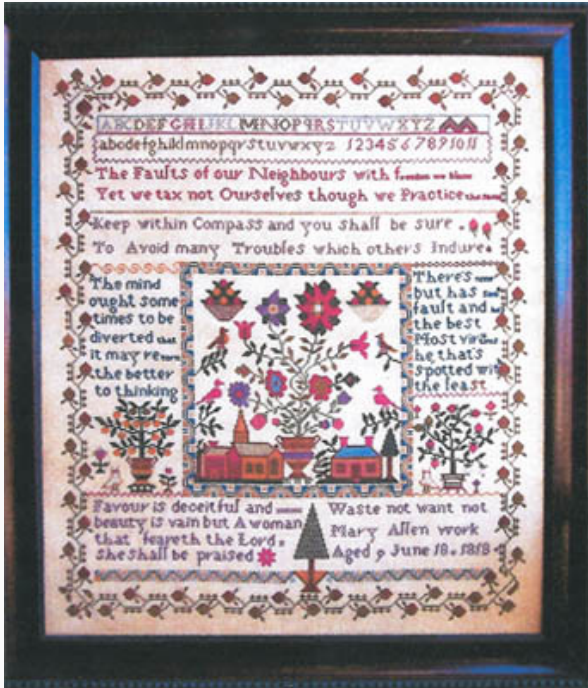 ABCDEFGHIJKLMNOPQRSTUVWXYZ
abcdefghiklmnopqrstuvwxyz 1234567891011
The Faults of our Neighbours with freedom we blame
Yet we tax not Ourselves though we Practice the same
Keep within Compass and you shall be sure
To Avoid many Troubles which others Indure.
The mind
ought some
times to be
diverted that
it may return
the better
to thinking
There's none
but has some
fault and he's
the best
Most virtuous
he that's
spotted with
the least
Favour is deceitful and
beauty is vain but A woman
that feareth the Lord.
she shall be praised
Waste not want not
Mary Allen work
Aged 9 June 18.1818